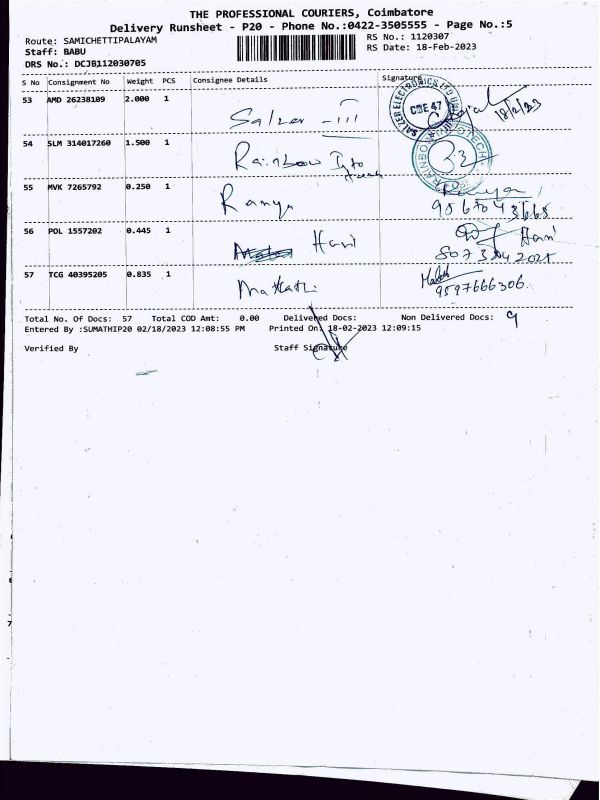 THE PROFESSIONAL COURIERS, Coimbatore
Delivery Runsheet - P20 - Phone No.:0422-3505555 - Page No.:5
Route: SAMICHETTIPALAYAM
RS No.: 1120307
Staff: BABU
RS Date: 18-Feb-2023
DRS No.: DCJB112030705
S No Consignment No Weight PCS Consignee Details Signature
53 AMD 26238109 2.000 1 Salzer - III
SALZER ELECTRONICS LTD UNIT
CBE 47
18/2/23
54 SLM 314017260 1.500 1 Rainbow
RAINBOW
55 MVK 7265792 0.250 1 Ramya Ramya
56 POL 1557202 0.445 1 Hari Hari
57 TCG 40395205 0.835 1
9597666306
Total No. Of Docs: 57 Total COD Amt: 0.00 Delivered Docs: Non Delivered Docs: 9
Entered By :SUMATHIP20 02/18/2023 12:08:55 PM Printed On: 18-02-2023 12:09:15
Verified By Staff Signature